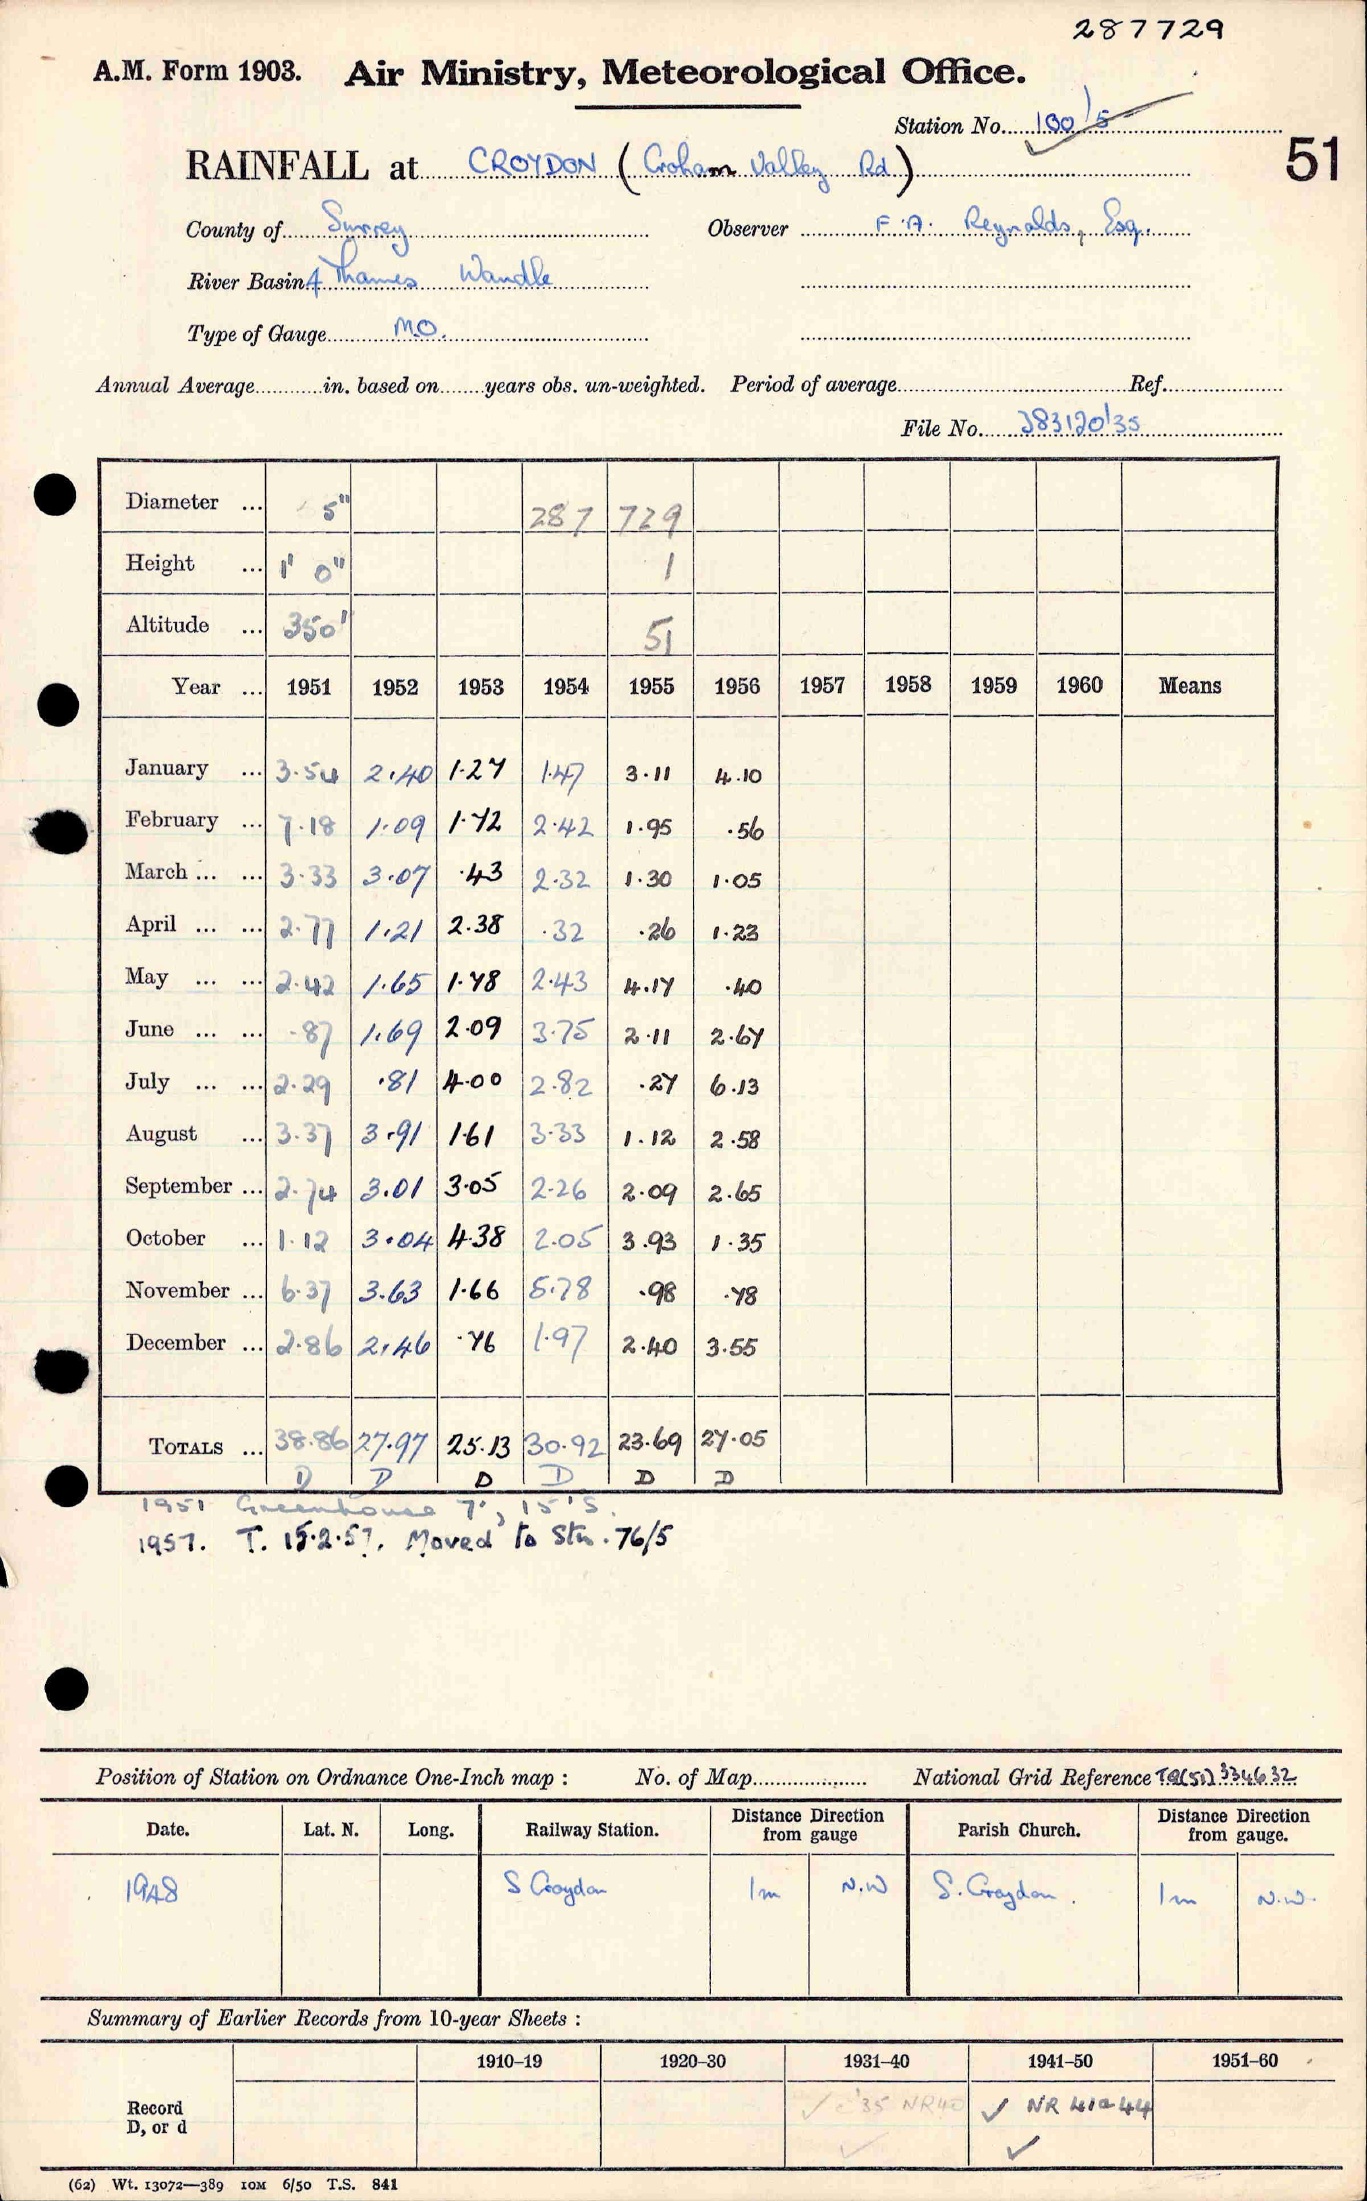 287729
A.M. Form 1903. Air Ministry, Meteorological Office.
Station No. 100/5
51
RAINFALL at CROYDON (Croham Valley Rd)
County of Surrey Observer F.A. Reynolds, Esq.
River Basin Thames Wandle
Type of Gauge M.O.
Annual Average in. based on years obs. un-weighted. Period of average Ref.
File No. 283120/35
Diameter ... 5" 287 729
Height ... 1' 0" 1
Altitude ... 350' 51
Year ... 1951 1952 1953 1954 1955 1956 1957 1958 1959 1960 Means
January ... 3.54 2.40 1.27 1.47 3.11 4.10
February ... 7.18 1.09 1.72 2.42 1.95 .56
March ... ... 3.33 3.07 .43 2.32 1.30 1.05
April ... ... 2.77 1.21 2.38 .32 .26 1.23
May ... ... 2.42 1.65 1.78 2.43 4.17 .40
June ... ... .87 1.69 2.09 3.75 2.11 2.67
July ... ... 2.29 .81 4.00 2.82 .27 6.13
August ... 3.37 3.91 1.61 3.33 1.12 2.58
September ... 2.74 3.01 3.05 2.26 2.09 2.65
October ... 1.12 3.04 4.38 2.05 3.93 1.35
November ... 6.37 3.63 1.66 5.78 .98 .78
December ... 2.86 2.46 .76 1.97 2.40 3.55
TOTALS ... 38.86 27.97 25.13 30.92 23.69 27.05
D D D D D D
1951 Greenhouse 7', 15'S.
1957. T. 15.2.57. Moved to Stn. 76/5
Position of Station on Ordnance One-Inch map : No. of Map National Grid Reference TQ(51) 334632
Date. Lat. N. Long. Railway Station. Distance Direction from gauge Parish Church. Distance Direction from gauge.
1948 S Croydon 1m N.W S. Croydon. 1m N.W.
Summary of Earlier Records from 10-year Sheets :
1910–19 1920–30 1931–40 1941–50 1951–60
Record D, or d ✓ '35 NR40 ✓ NR 41-44
✓ ✓
(62) Wt. 13072—389 10M 6/50 T.S. 841